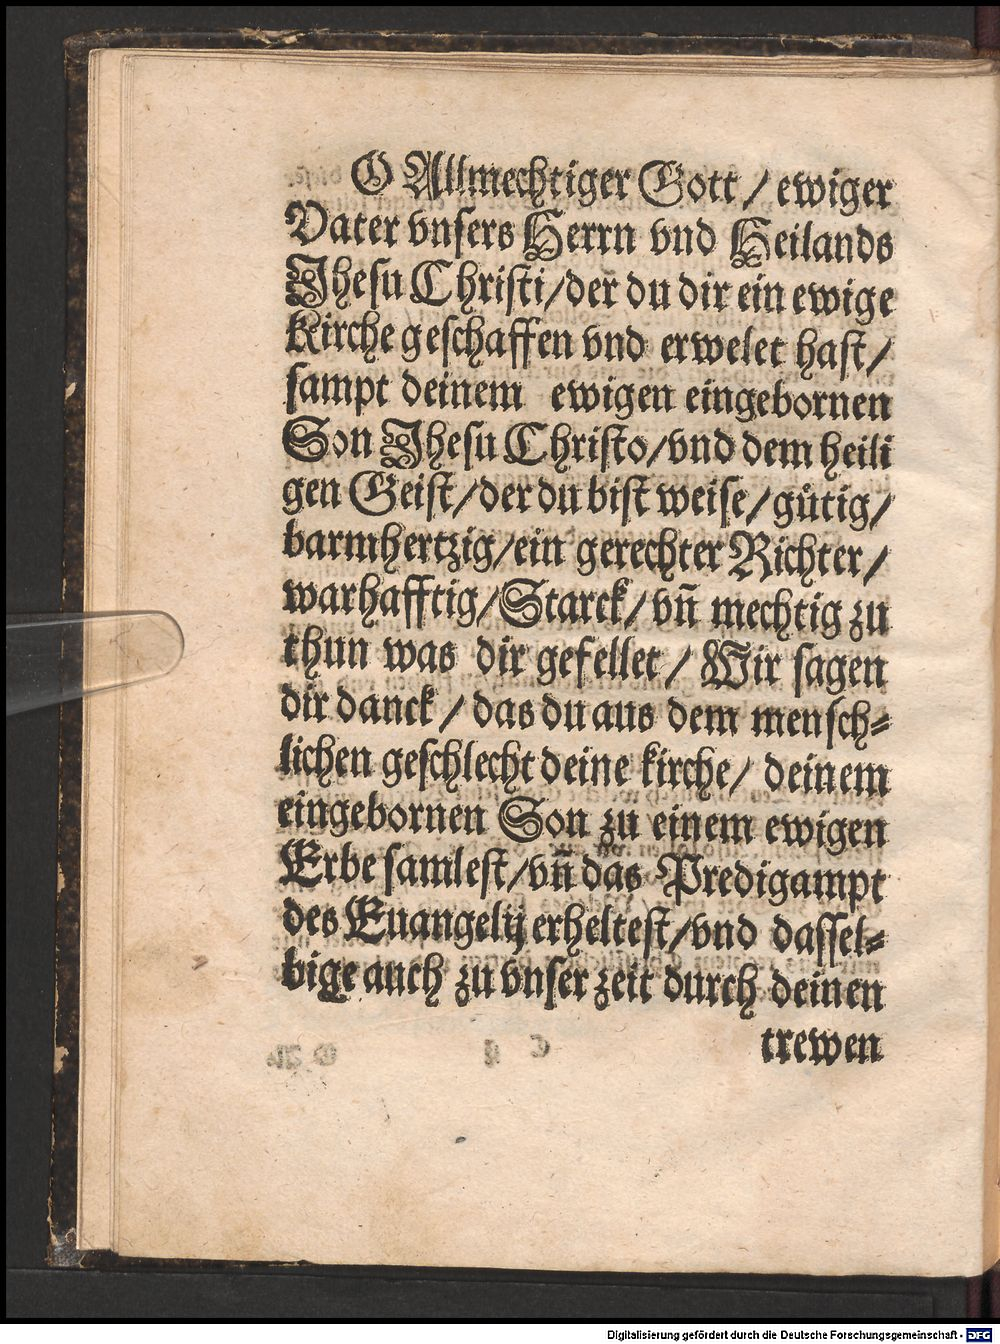 O Allmechtiger Gott / ewiger
Vater vnsers Herrn vnd Heilands
Jhesu Christi/der du dir ein ewige
Kirche geschaffen vnd erwelet hast/
sampt deinem ewigen eingebornen
Son Jhesu Christo/vnd dem heili
gen Geist/der du bist weise/gütig/
barmhertzig/ein gerechter Richter/
warhafftig/Starck/vn̄ mechtig zu
thun was dir gefellet / Wir sagen
dir danck / das du aus dem mensch⸗
lichen geschlecht deine kirche/ deinem
eingebornen Son zu einem ewigen
Erbe samlest/vn̄ das Predigampt
des Euangelij erheltest/vnd dassel⸗
bige auch zu vnser zeit durch deinen
trewen
Digitalisierung gefördert durch die Deutsche Forschungsgemeinschaft - DFG